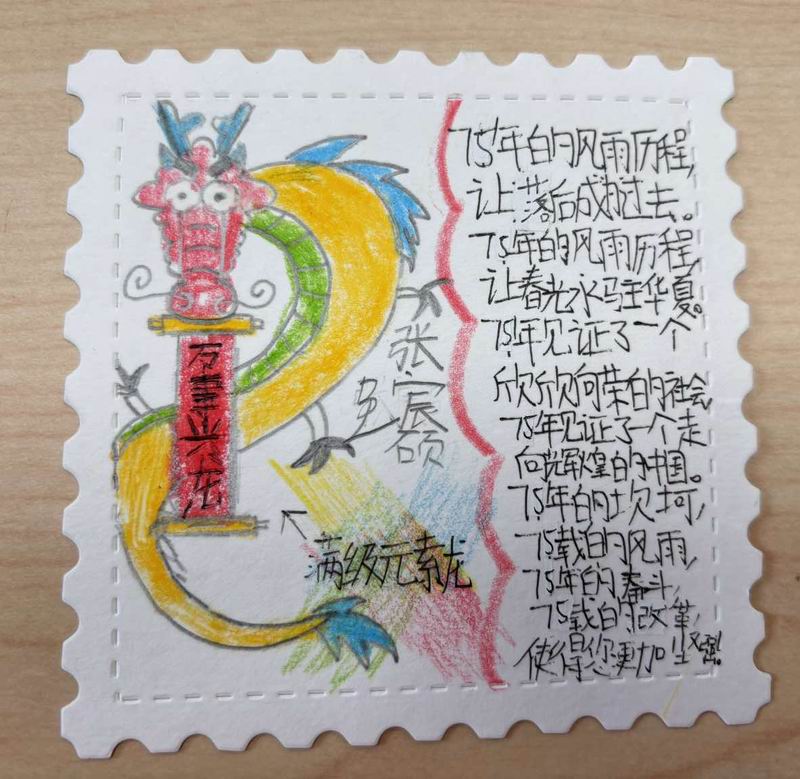 万事兴龙
张宸硕
满级元素龙
75年的风雨历程,
让落后成为过去。
75年的风雨历程,
让春光永驻华夏。
75年见证了一个
欣欣向荣的社会,
75年见证了一个走
向辉煌的中国。
75年的坎坷,
75载的风雨,
75年的奋斗,
75载的改革,
使得您更加坚强!